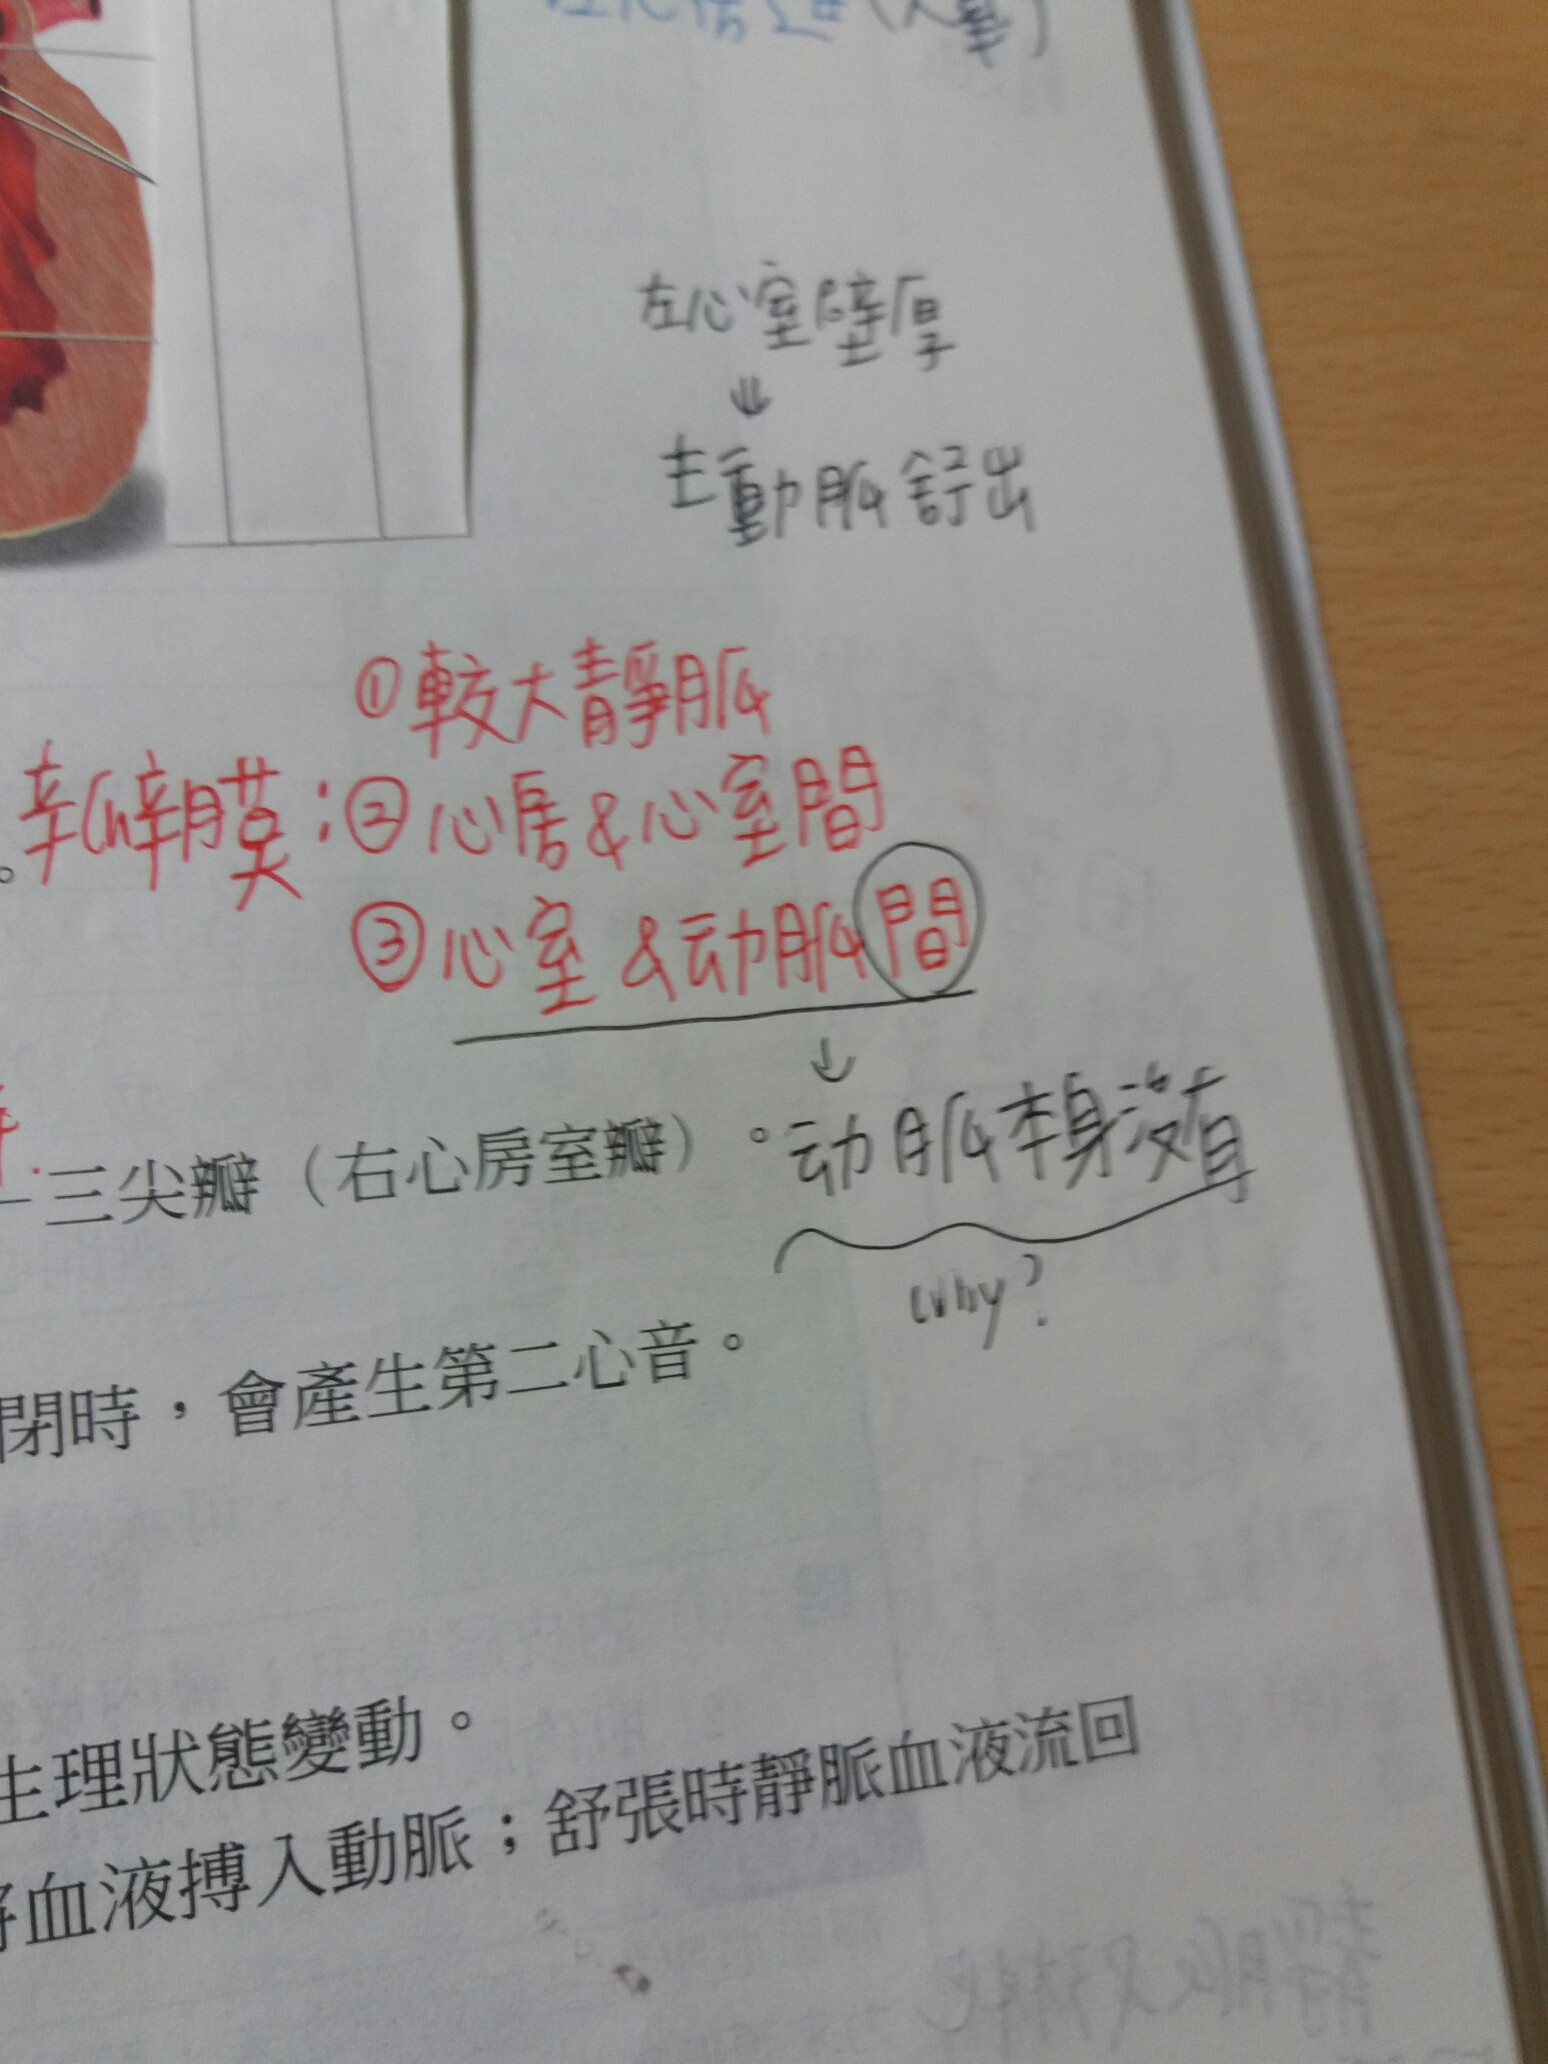 左心室壁厚
⇓
主動脈舒出
①較大靜脈
。瓣膜:②心房&心室間
③心室&动脈間
↓
三尖瓣（右心房室瓣）。动脈本身沒有
why?
閉時，會產生第二心音。
生理狀態變動。
血液搏入動脈；舒張時靜脈血液流回